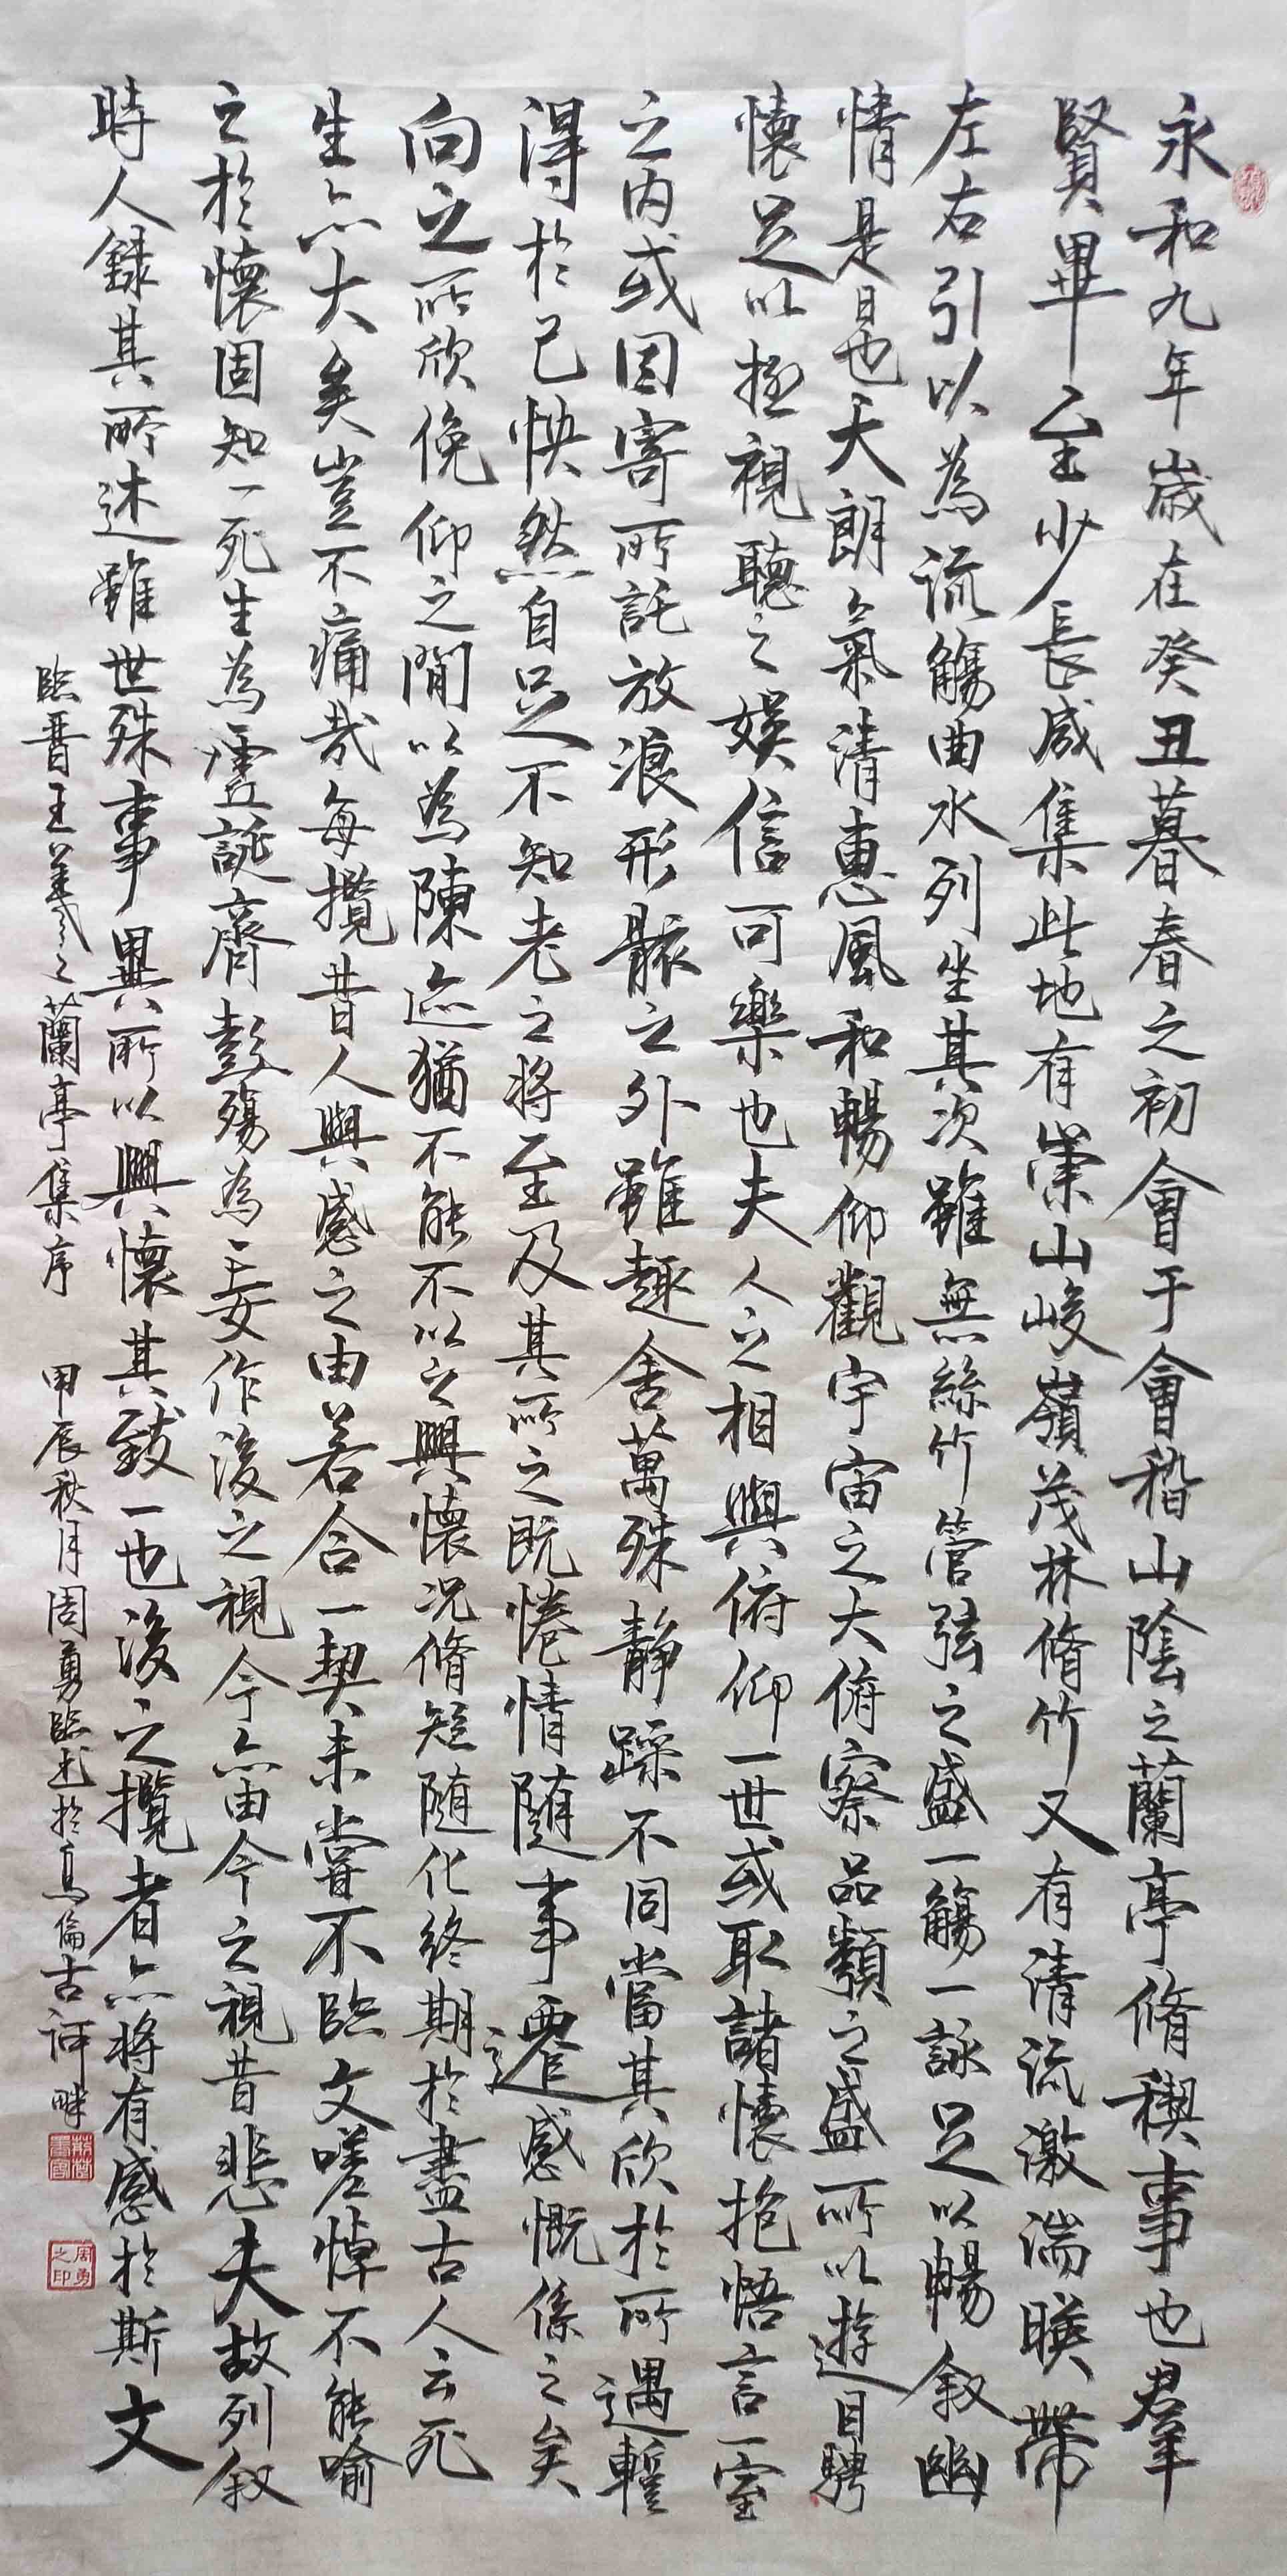 永和九年歲在癸丑暮春之初會于會稽山陰之蘭亭脩稧事也群
賢畢至少長咸集此地有崇山峻嶺茂林脩竹又有清流激湍暎帶
左右引以為流觴曲水列坐其次雖無絲竹管弦之盛一觴一詠足以暢叙幽
情是日也天朗氣清惠風和暢仰觀宇宙之大俯察品類之盛所以遊目騁
懷足以極視聽之娛信可樂也夫人之相與俯仰一世或取諸懷抱悟言一室
之內或因寄所託放浪形骸之外雖趣舍萬殊靜躁不同當其欣於所遇暫
得於己怏然自足不知老之將至及其所之既惓情隨事遷感慨係之矣
向之所欣俛仰之閒以為陳迹猶不能不以之興懷況脩短隨化終期於盡古人云死
生亦大矣豈不痛哉每攬昔人興感之由若合一契未嘗不臨文嗟悼不能喻
之於懷固知一死生為虛誕齊彭殤為妄作後之視今亦由今之視昔悲夫故列叙
時人錄其所述雖世殊事異所以興懷其致一也後之攬者亦將有感於斯文
臨晉王羲之蘭亭集序 甲辰秋月周勇臨書於烏倫古河畔
周勇之印